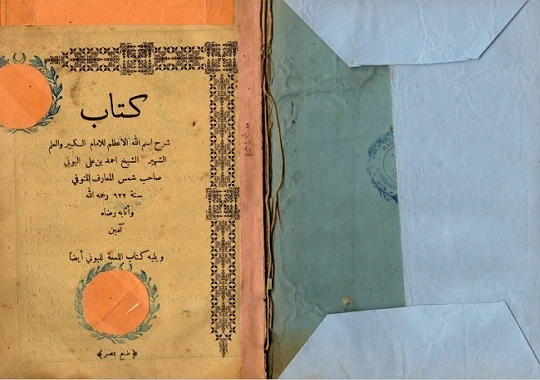 كتاب
شرح اسم الله الأعظم للامام الكبير والعلم
الشهير الشيخ احمد بن على البونى
صاحب شمس المعارف المتوفى
سنة ٦٢٢ رحمه الله
وأثابه رضاه
آمين
ويليه كتاب اللمعة للبونى أيضا
﴿طبع بمصر﴾